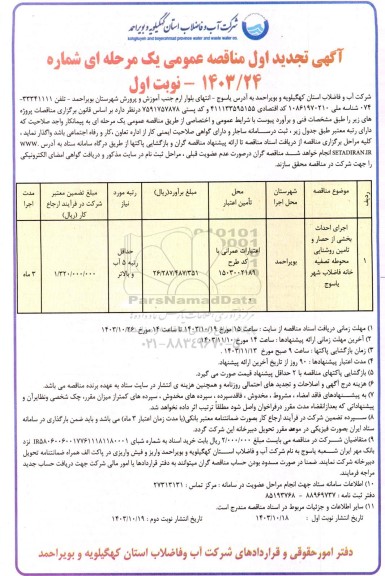 شرکت آب و فاضلاب استان کهگیلویه و بویراحمد
آگهی تجدید اول مناقصه عمومی یک مرحله ای شماره
۱۴۰۳/۲۴ - نوبت اول
شرکت آب و فاضلاب استان کهگیلویه و بویراحمد به آدرس یاسوج - انتهای بلوار ارم جنب آموزش و پرورش شهرستان بویراحمد - تلفن ۳۳۳۴۱۱۱۱-
۰۷۴ شناسه ملی ۱۰۸۶۱۹۷۰۲۱۰ کد اقتصادی ۴۱۱۱۳۳۵۹۵۱۵۵ و کد پستی ۷۵۹۱۷۵۷۸۷۸ درنظر دارد بر اساس قانون برگزاری مناقصات پروژه
های زیر را طبق مشخصات فنی و برآورد پیوست با شرایط عمومی و اختصاصی از طریق مناقصه عمومی یک مرحله ای به پیمانکار واجد صلاحیت که
دارای رتبه معتبر طبق جدول زیر ، ثبت درسامانه ساجار و دارای گواهی صلاحیت ایمنی کار از اداره تعاون ،کار و رفاه اجتماعی باشد واگذار نماید ،
کلیه مراحل برگزاری مناقصه از دریافت اسناد مناقصه تا ارائه پیشنهاد مناقصه گران و بازگشایی پاکتها از طریق درگاه سامانه ستاد به آدرس WWW.
SETADIRAN.IR انجام خواهد شد مناقصه گران درصورت عدم عضویت قبلی ، مراحل ثبت نام در سایت مذکور و دریافت گواهی امضای الکترونیکی
را جهت شرکت در مناقصه محقق سازند.
ردیف موضوع مناقصه شهرستان محل اجرا محل تأمین اعتبار مبلغ برآورد(ریال) رتبه مورد نیاز مبلغ تضمین معتبر شرکت در فرآیند ارجاع کار (ریال) مدت اجرا
۱ اجرای احداث بخشی از حصار و تامین روشنایی محوطه تصفیه خانه فاضلاب شهر یاسوج بویراحمد اعتبارات عمرانی با کد طرح ۱۵۰۳۰۰۴۱۸۹ ۲۶/۲۸۷/۴۸۷/۳۵۱ حداقل رتبه ۵ آب و بالاتر ۱/۳۲۰/۰۰۰/۰۰۰ ۳ ماه
۱) مهلت زمانی دریافت اسناد مناقصه از سایت : ساعت ۱۵ مورخ ۱۴۰۳/۱۰/۱۹ تا ساعت ۱۴ مورخ ۱۴۰۳/۱۰/۲۶
۲) آخرین مهلت زمانی ارائه پیشنهادها : ساعت ۱۴ مورخ
۳) زمان بازگشایی پاکتها : ساعت ۹ صبح مورخ
۴) مدت اعتبار پیشنهادها : ۹۰ روز از تاریخ آخرین ارائه پیشنهاد.
۵) بازگشایی پاکتهای مناقصه با ۲ حداقل پیشنهاد قیمت صورت می گیرد.
۶) هزینه درج آگهی و اصلاحات و تجدید های احتمالی روزنامه و همچنین هزینه ی انتشار در سایت ستاد به عهده برنده مناقصه می باشد.
۷) به پیشنهادهای فاقد امضاء ، مشروط ، مخدوش ، فاقدسپرده ، سپرده های مخدوش ، سپرده های کمتراز میزان مقرر، چک شخصی ونظایرآن و
پیشنهاداتی که بعدازانقضاء مدت مقرر درفراخوان واصل شود مطلقاً ترتیب اثر داده نخواهد شد.
۸) سپرده تضمین شرکت در فرآیند ارجاع کار بصورت ضمانتنامه معتبر بانکی(با مدت زمان اعتبار ۳ ماه) می باشد و باید ضمن بارگذاری در سامانه
ستاد ایران بصورت فیزیکی در موعد مقرر تحویل دبیرخانه این شرکت گردد.
۹) متقاضیان شرکت در مناقصه می بایست مبلغ ۲/۰۰۰/۰۰۰ ریال بابت خرید اسناد به شماره شبای نزد
بانک مهر ایران شعبه یاسوج به نام شرکت آب و فاضلاب استان کهگیلویه و بویراحمد واریز و فیش واریزی در پاکت الف همراه ضمانتنامه تحویل
دبیرخانه شرکت نمایند. ضمنا در صورت مسدود بودن حساب مناقصه گران میتوانند به دفتر قراردادها یا امور مالی شرکت جهت دریافت حساب جدید
مراجعه فرمایند.
۱۰) اطلاعات سامانه ستاد جهت انجام مراحل عضویت در سامانه : مرکز تماس : ۲۷۳۱۳۱۳۱
دفتر ثبت نامه : ۸۸۹۶۹۷۳۷ – ۸۵۱۹۳۷۶۸
۱۱) سایر اطلاعات و جزئیات مربوط در اسناد مناقصه مندرج است.
تاریخ انتشار نوبت اول : ۱۴۰۳/۱۰/۱۸ تاریخ انتشار نوبت دوم : ۱۴۰۳/۱۰/۱۹
دفتر امورحقوقی و قراردادهای شرکت آب وفاضلاب استان کهگیلویه و بویراحمد